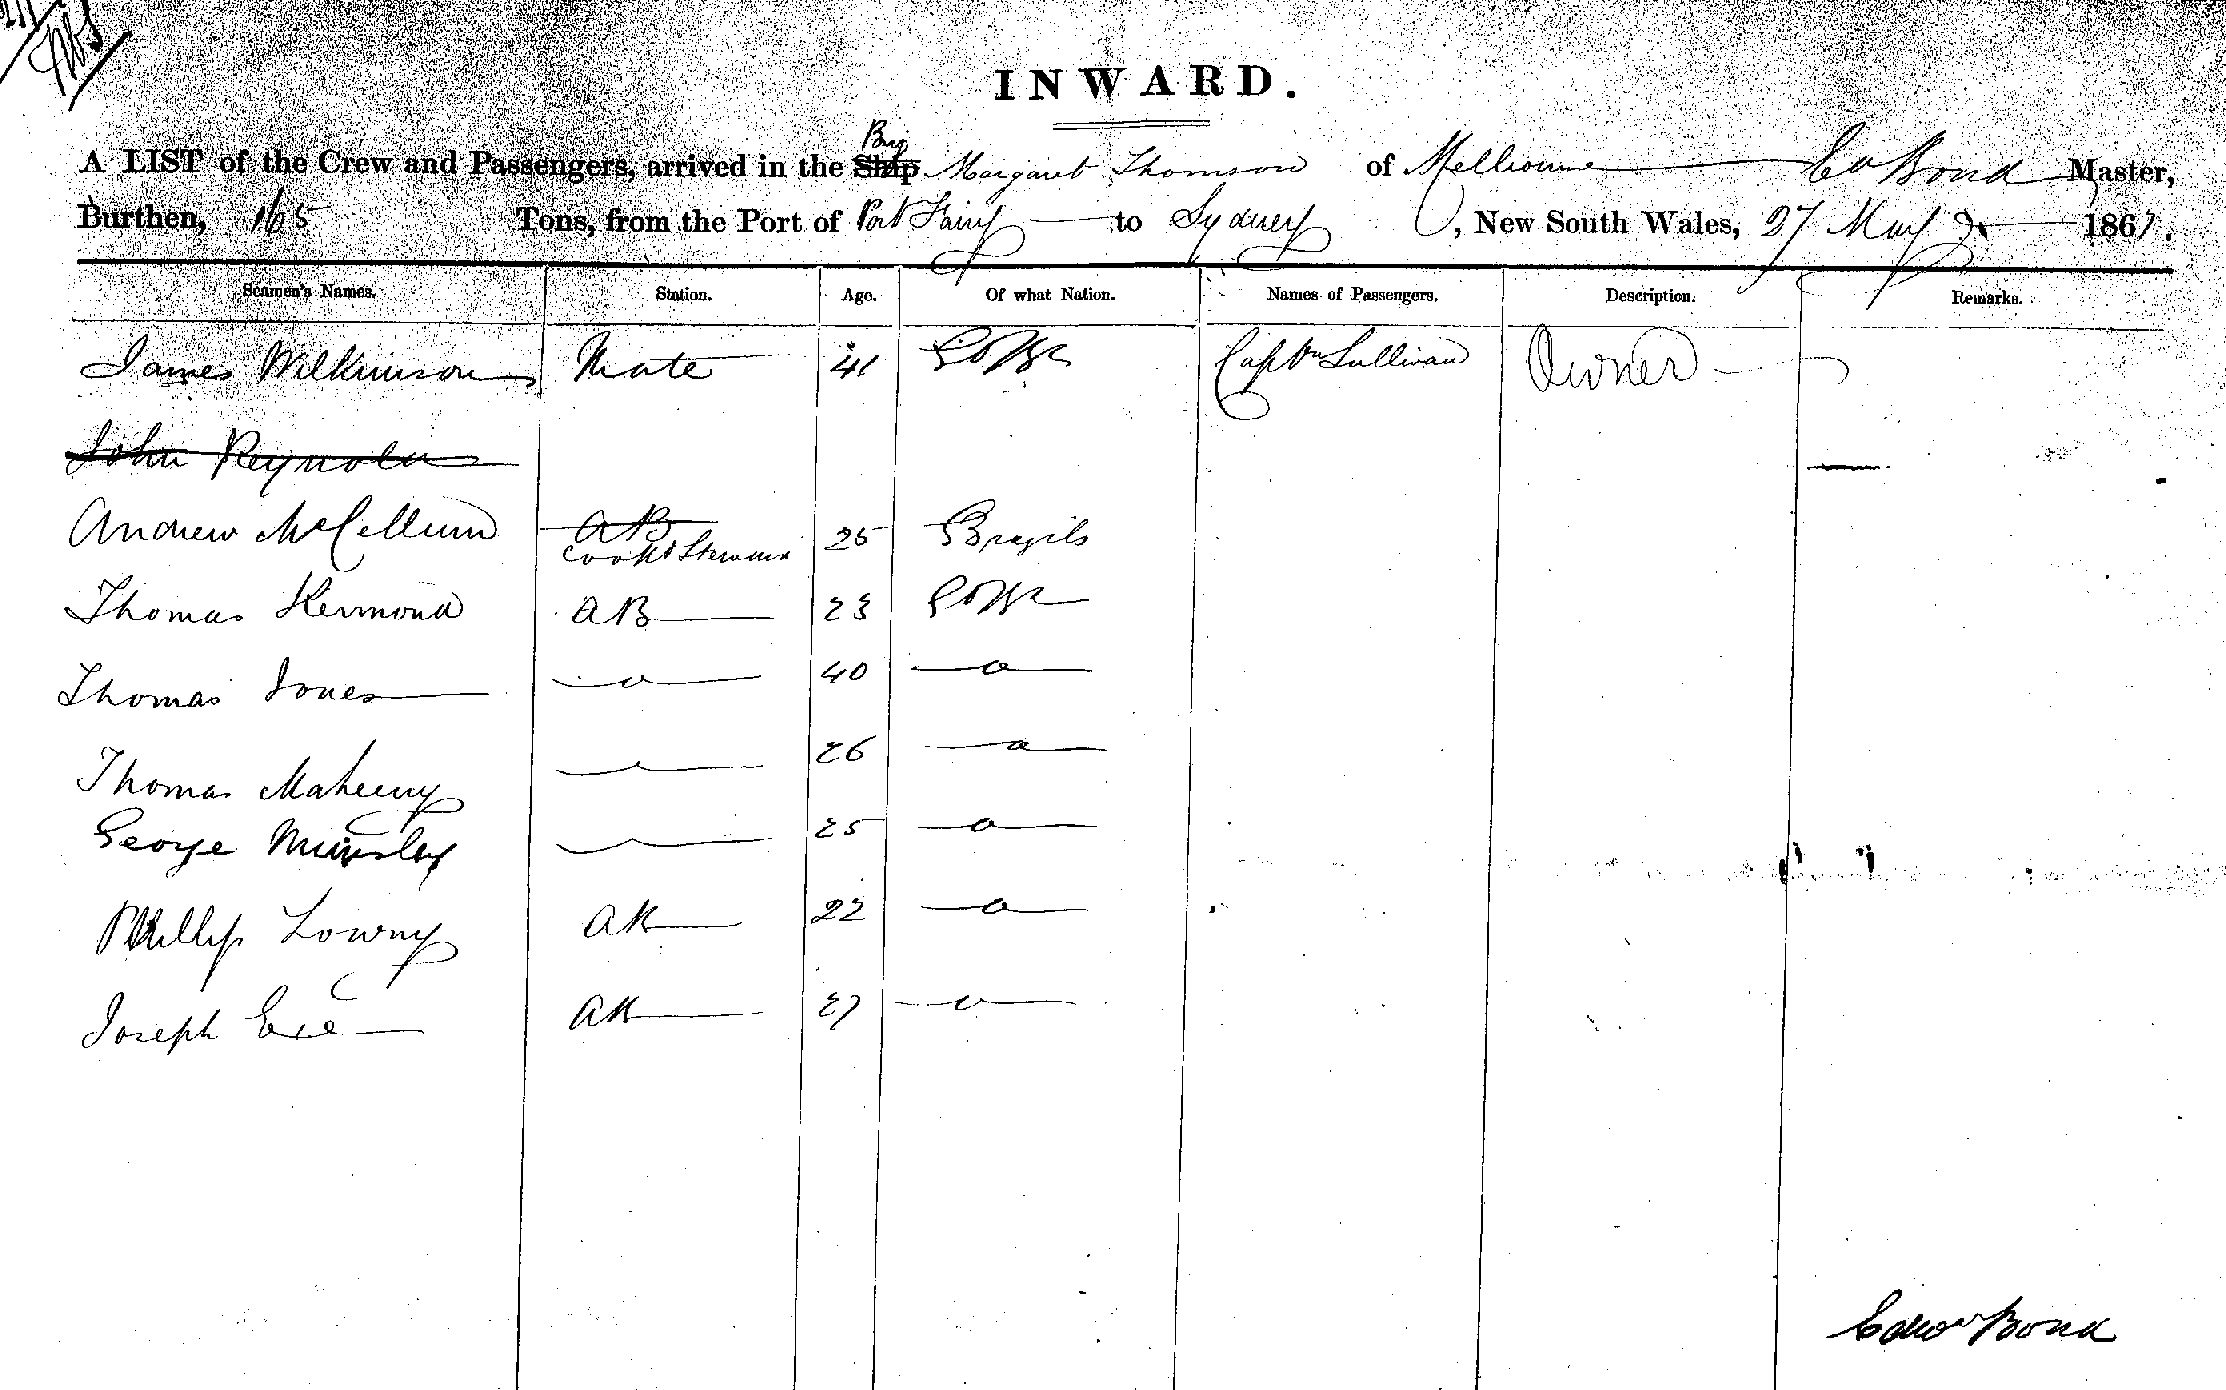 INWARD.
Brig
A LIST of the Crew and Passengers, arrived in the Ship Margaret Thomson of Melbourne Ed Bond Master,
Burthen, 165 Tons, from the Port of Port Fairy to Sydney, New South Wales, 27 May 1867.
Seamen's Names. Station. Age. Of what Nation. Names of Passengers. Description. Remarks.
James Wilkinson Mate 41 Captn Sullivan Owner
John Reynolds
Andrew McCellum AB 25 Brazils
Cook & Steward
Thomas Kermond AB 23
Thomas Jones 40
Thomas Maheny 26
George 25
Phillip Lowry 22
Joseph 27
Edwd Bond